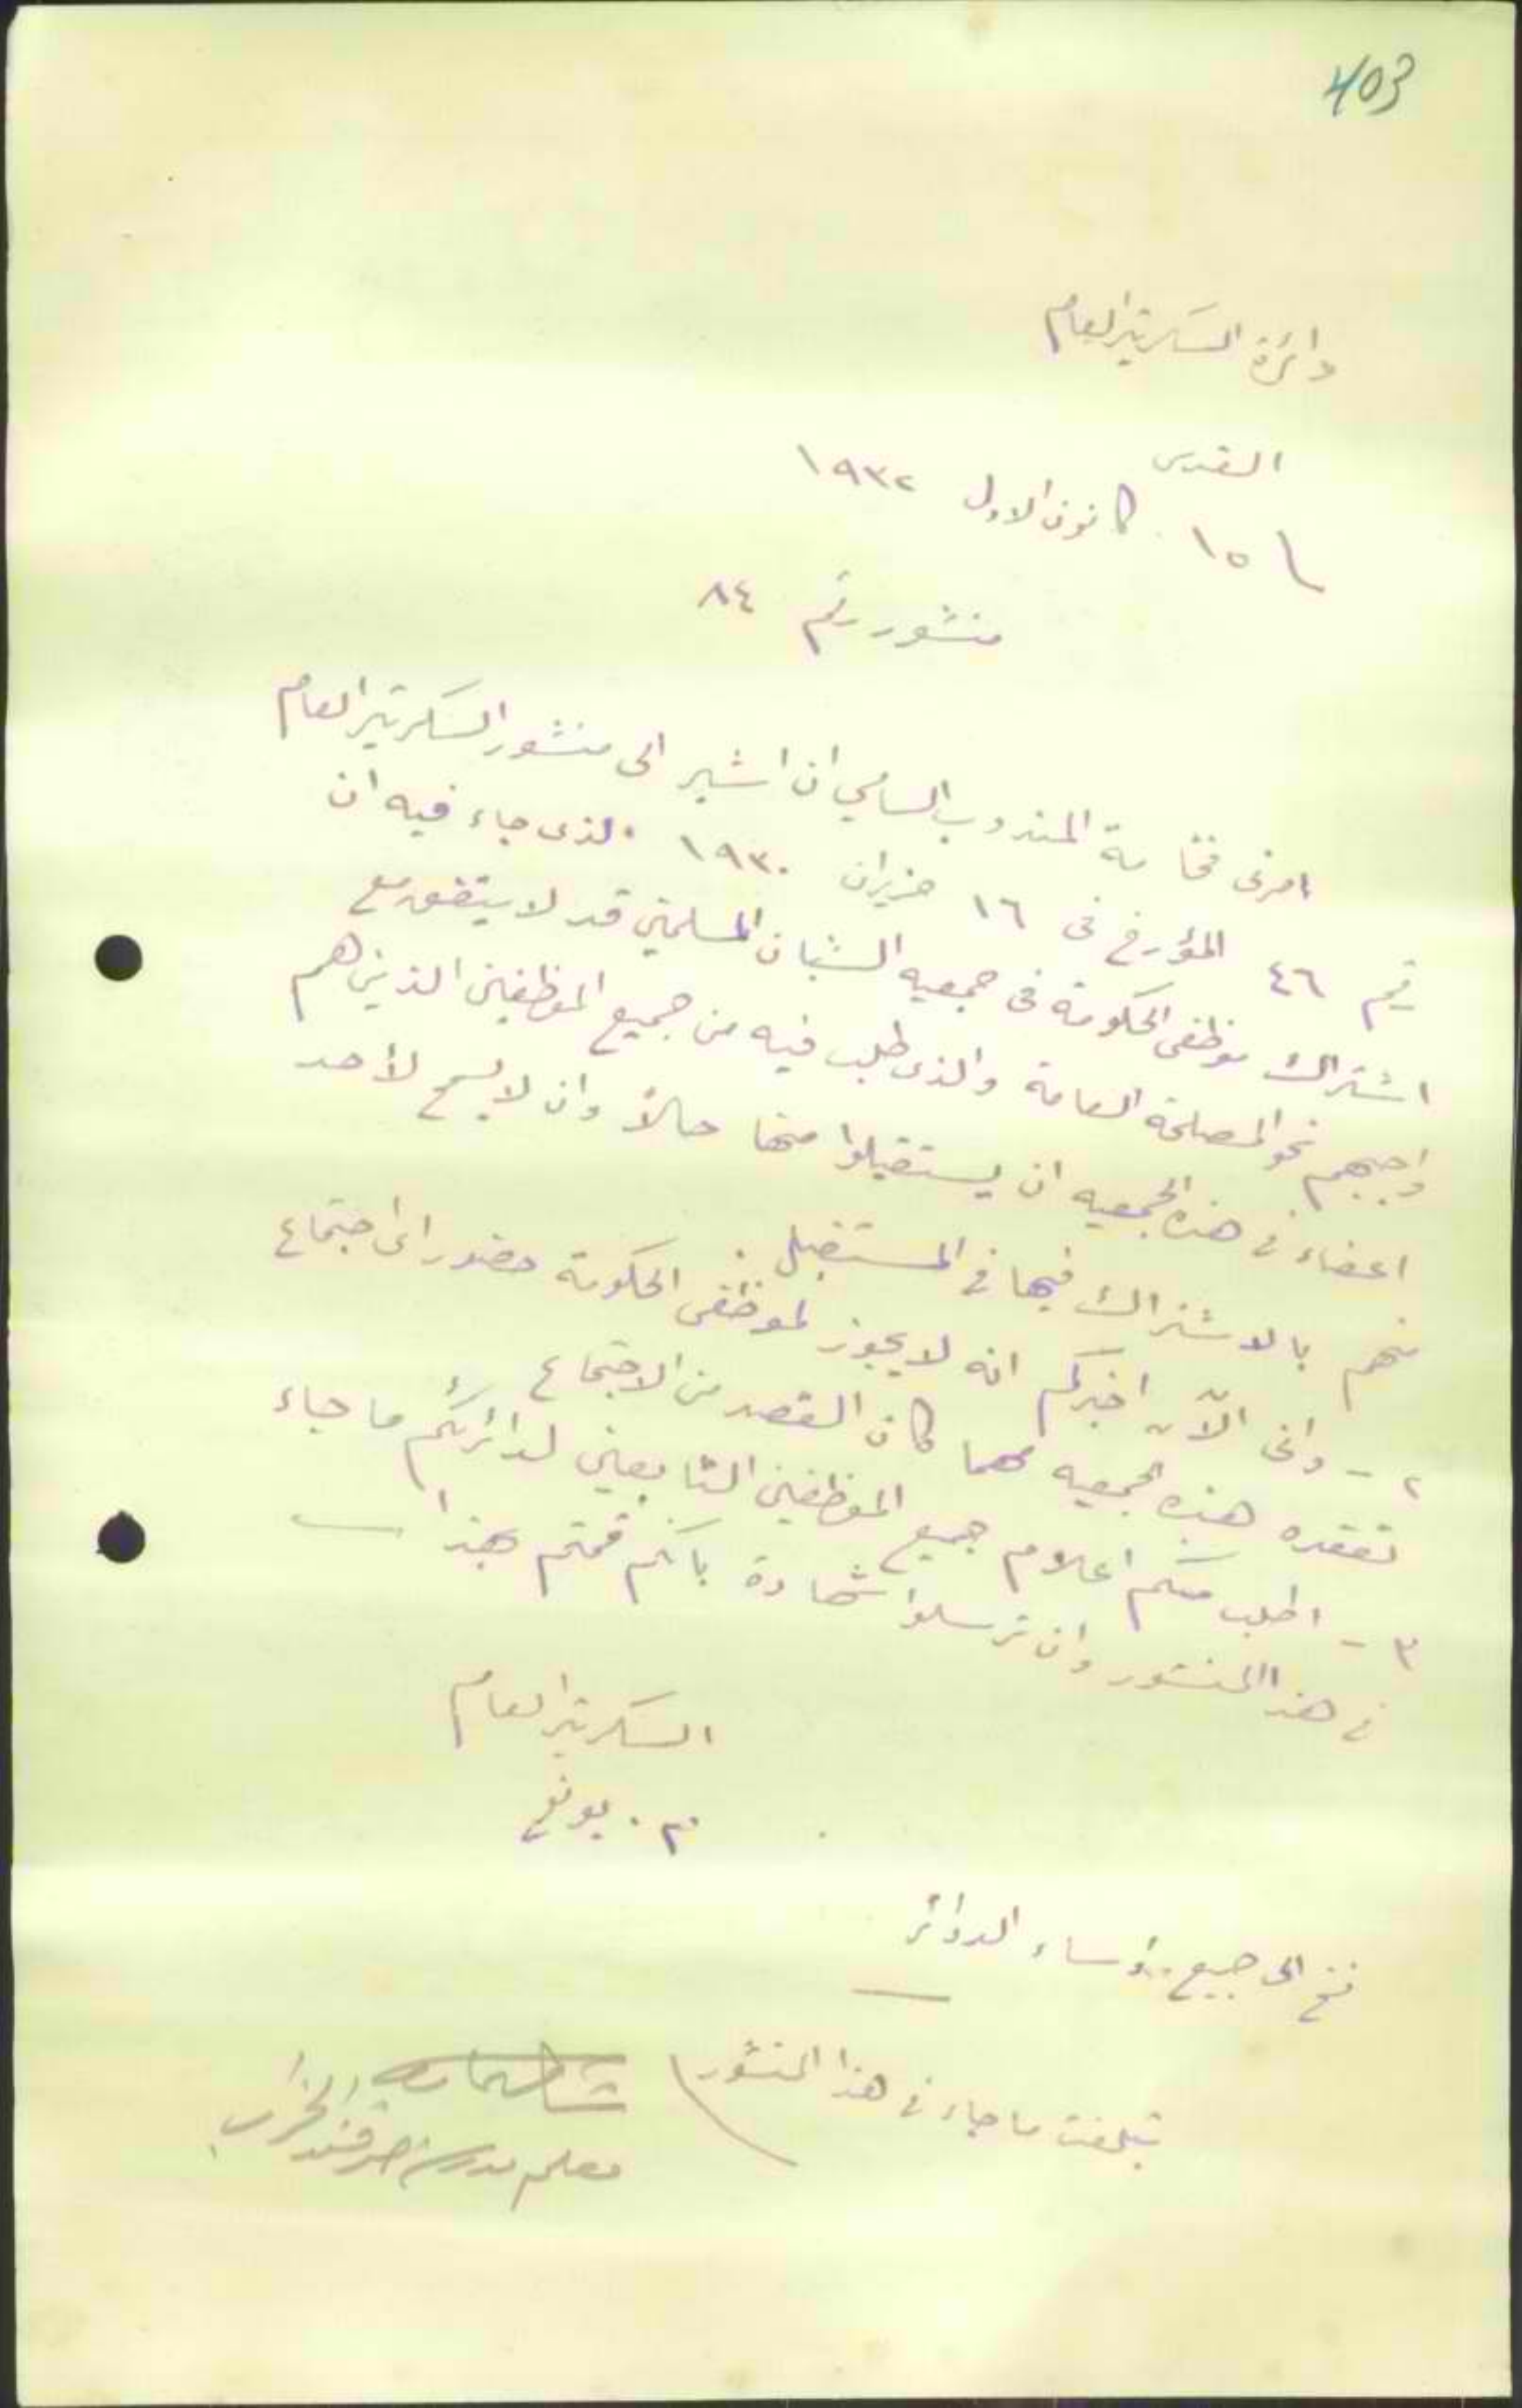 403
دائرة السكرتير العام
القدس
١٥ كانون الاول ١٩٣٢
منشور رقم ٨٤
امرنى فخامة المندوب السامي ان اشير الى منشور السكرتير العام
رقم ٤٦ المؤرخ فى ١٦ حزيران ١٩٣٠ الذى جاء فيه ان
اشتراك موظفى الحكومة فى جمعيه الشبان المسلمين قد لا يتفق مع
واجبهم نحو المصلحة العامة والذى طلب فيه من جميع الموظفين الذين هم
اعضاء فى هذه الجمعيه ان يستقيلوا منها حالاً وان لا يسمح لأحد
منهم بالاشتراك فيها فى المستقبل .
٢ - وانى الآن اخبركم انه لا يجوز لموظفى الحكومة حضور اى اجتماع
تعقده هذه الجمعيه مهما كان القصد من الاجتماع
٣ - اطلب منكم اعلام جميع الموظفين التابعين لدائرتكم ما جاء
فى هذا المنشور وان ترسلوا شهادة بانكم قمتم بهذا
السكرتير العام
م . يونغ
نسخ الى جميع رؤساء الدوائر
تبلغت ما جاء فى هذا المنشور
معلم مدرسة صرفند الخراب